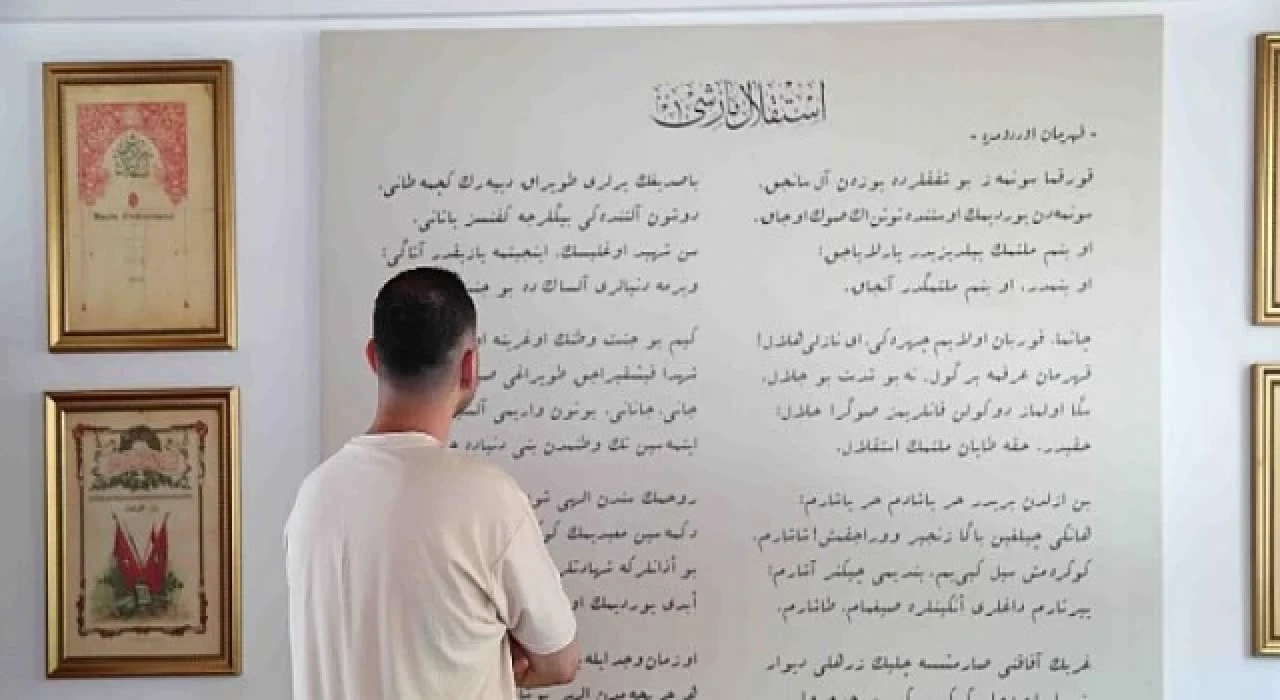 استقلال مارشی
- قهرمان اوردومزه -
قورقما سونمه ز بو شفقلرده یوزن آل سانجق،
سونمه‌دن یوردیمك اوستنده توتن اڭ صوڭ اوجاق.
او بنم ملتمك ییلدیزیدر پارلایاجق؛
او بنمدر، او بنم ملتمڭدر آنجاق.
چاتما، قوربان اولایم چهره‌كی، ای نازلی هلال!
قهرمان عرقمه بر گول، نه بو شدت بو جلال،
سڭا اولماز دوكولن قانلریمز صوڭرا حلال؛
حقیدر، حقه طاپان ملتمك استقلال.
بن ازلدن بریدر حر یاشادم حر یاشارم؛
هانكی چیلغین باڭا زنجیر ووراجقمش! شاشارم.
كوكره‌مش سیل كبی‌یم، بندیمی چیكنر آشارم؛
ییرتارم داغلری، أنگینلره صیغمام، طاشارم.
غربك آفاقنی صارمشسه چلیك زرهلی دیوار
باصدیغك یرلری طوپراق دییه‌رك گچمه طانی،
دوشون آلتنده‌كی بیڭلرجه كفنسز یاتانی.
سن شهید اوغلیسك، اینجیتمه یازیقدر آتاڭی؛
ویرمه دنیالری آلساك ده بو
كیم بو جنت وطنك اوغرینه
شهدا فیشقیراجق طوپراغی
جانی، جانانی، بوتون واریمی
ایتمه‌سین تك وطنمدن بنی دنیاده
روحمك سندن الهی
دكمه‌سین معبدیمك
بو أذانلر كه شهادتلر
أبدی یوردیمك
او زمان وجد ایله